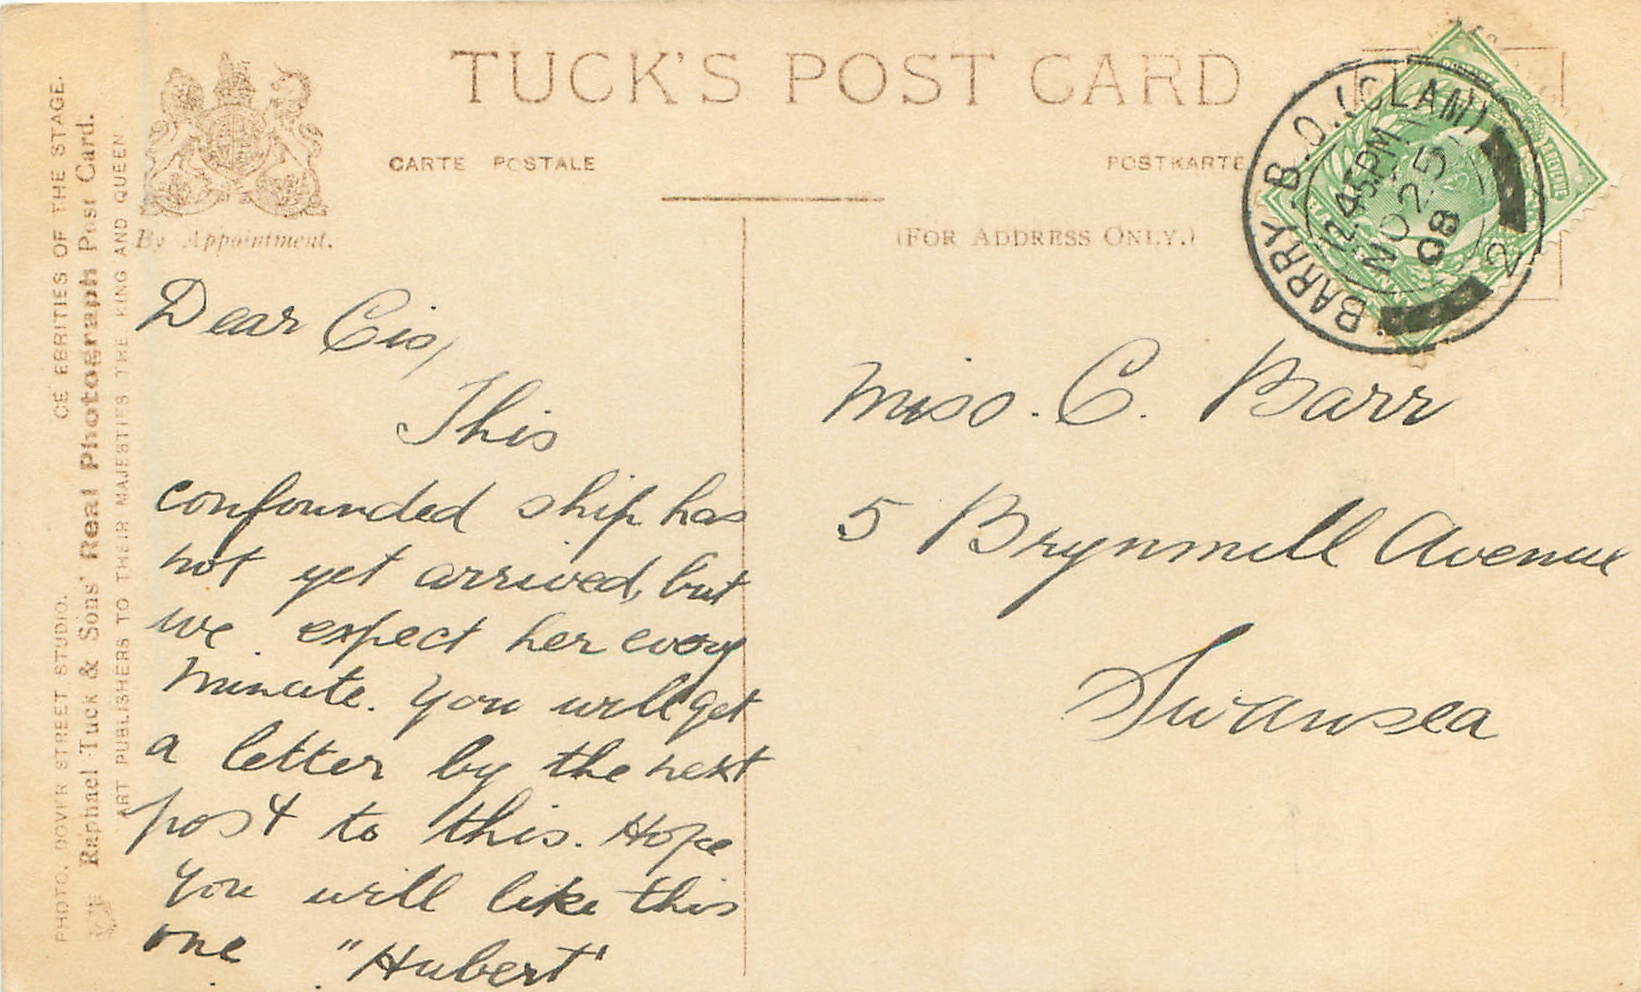 TUCK'S POST CARD
CARTE POSTALE
POSTKARTE
By Appointment.
(FOR ADDRESS ONLY.)
BARRY B.O. (GLAM)
12.45PM
NO 25
08
2
Dear Cis,
This
confounded ship has
not yet arrived, but
we expect her every
minute. You will get
a letter by the next
post to this. Hope
you will like this
one "Hubert"
Miss. C. Barr
5 Brynmill Avenue
Swansea
PHOTO. DOVER STREET STUDIO. CELEBRITIES OF THE STAGE.
Raphael Tuck & Sons' Real Photograph Post Card.
ART PUBLISHERS TO THEIR MAJESTIES THE KING AND QUEEN.